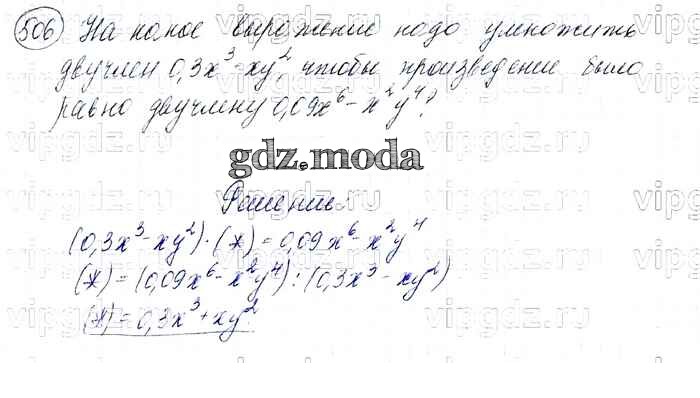 506 На какое выражение надо умножить
двучлен 0,3x³-xy², чтобы произведение было
равно двучлену 0,09x⁶-x²y⁴?
gdz.moda
Решение:
(0,3x³-xy²)·(*)=0,09x⁶-x²y⁴
(*)=(0,09x⁶-x²y⁴):(0,3x³-xy²)
(*)=0,3x³+xy²
vipgdz.ru